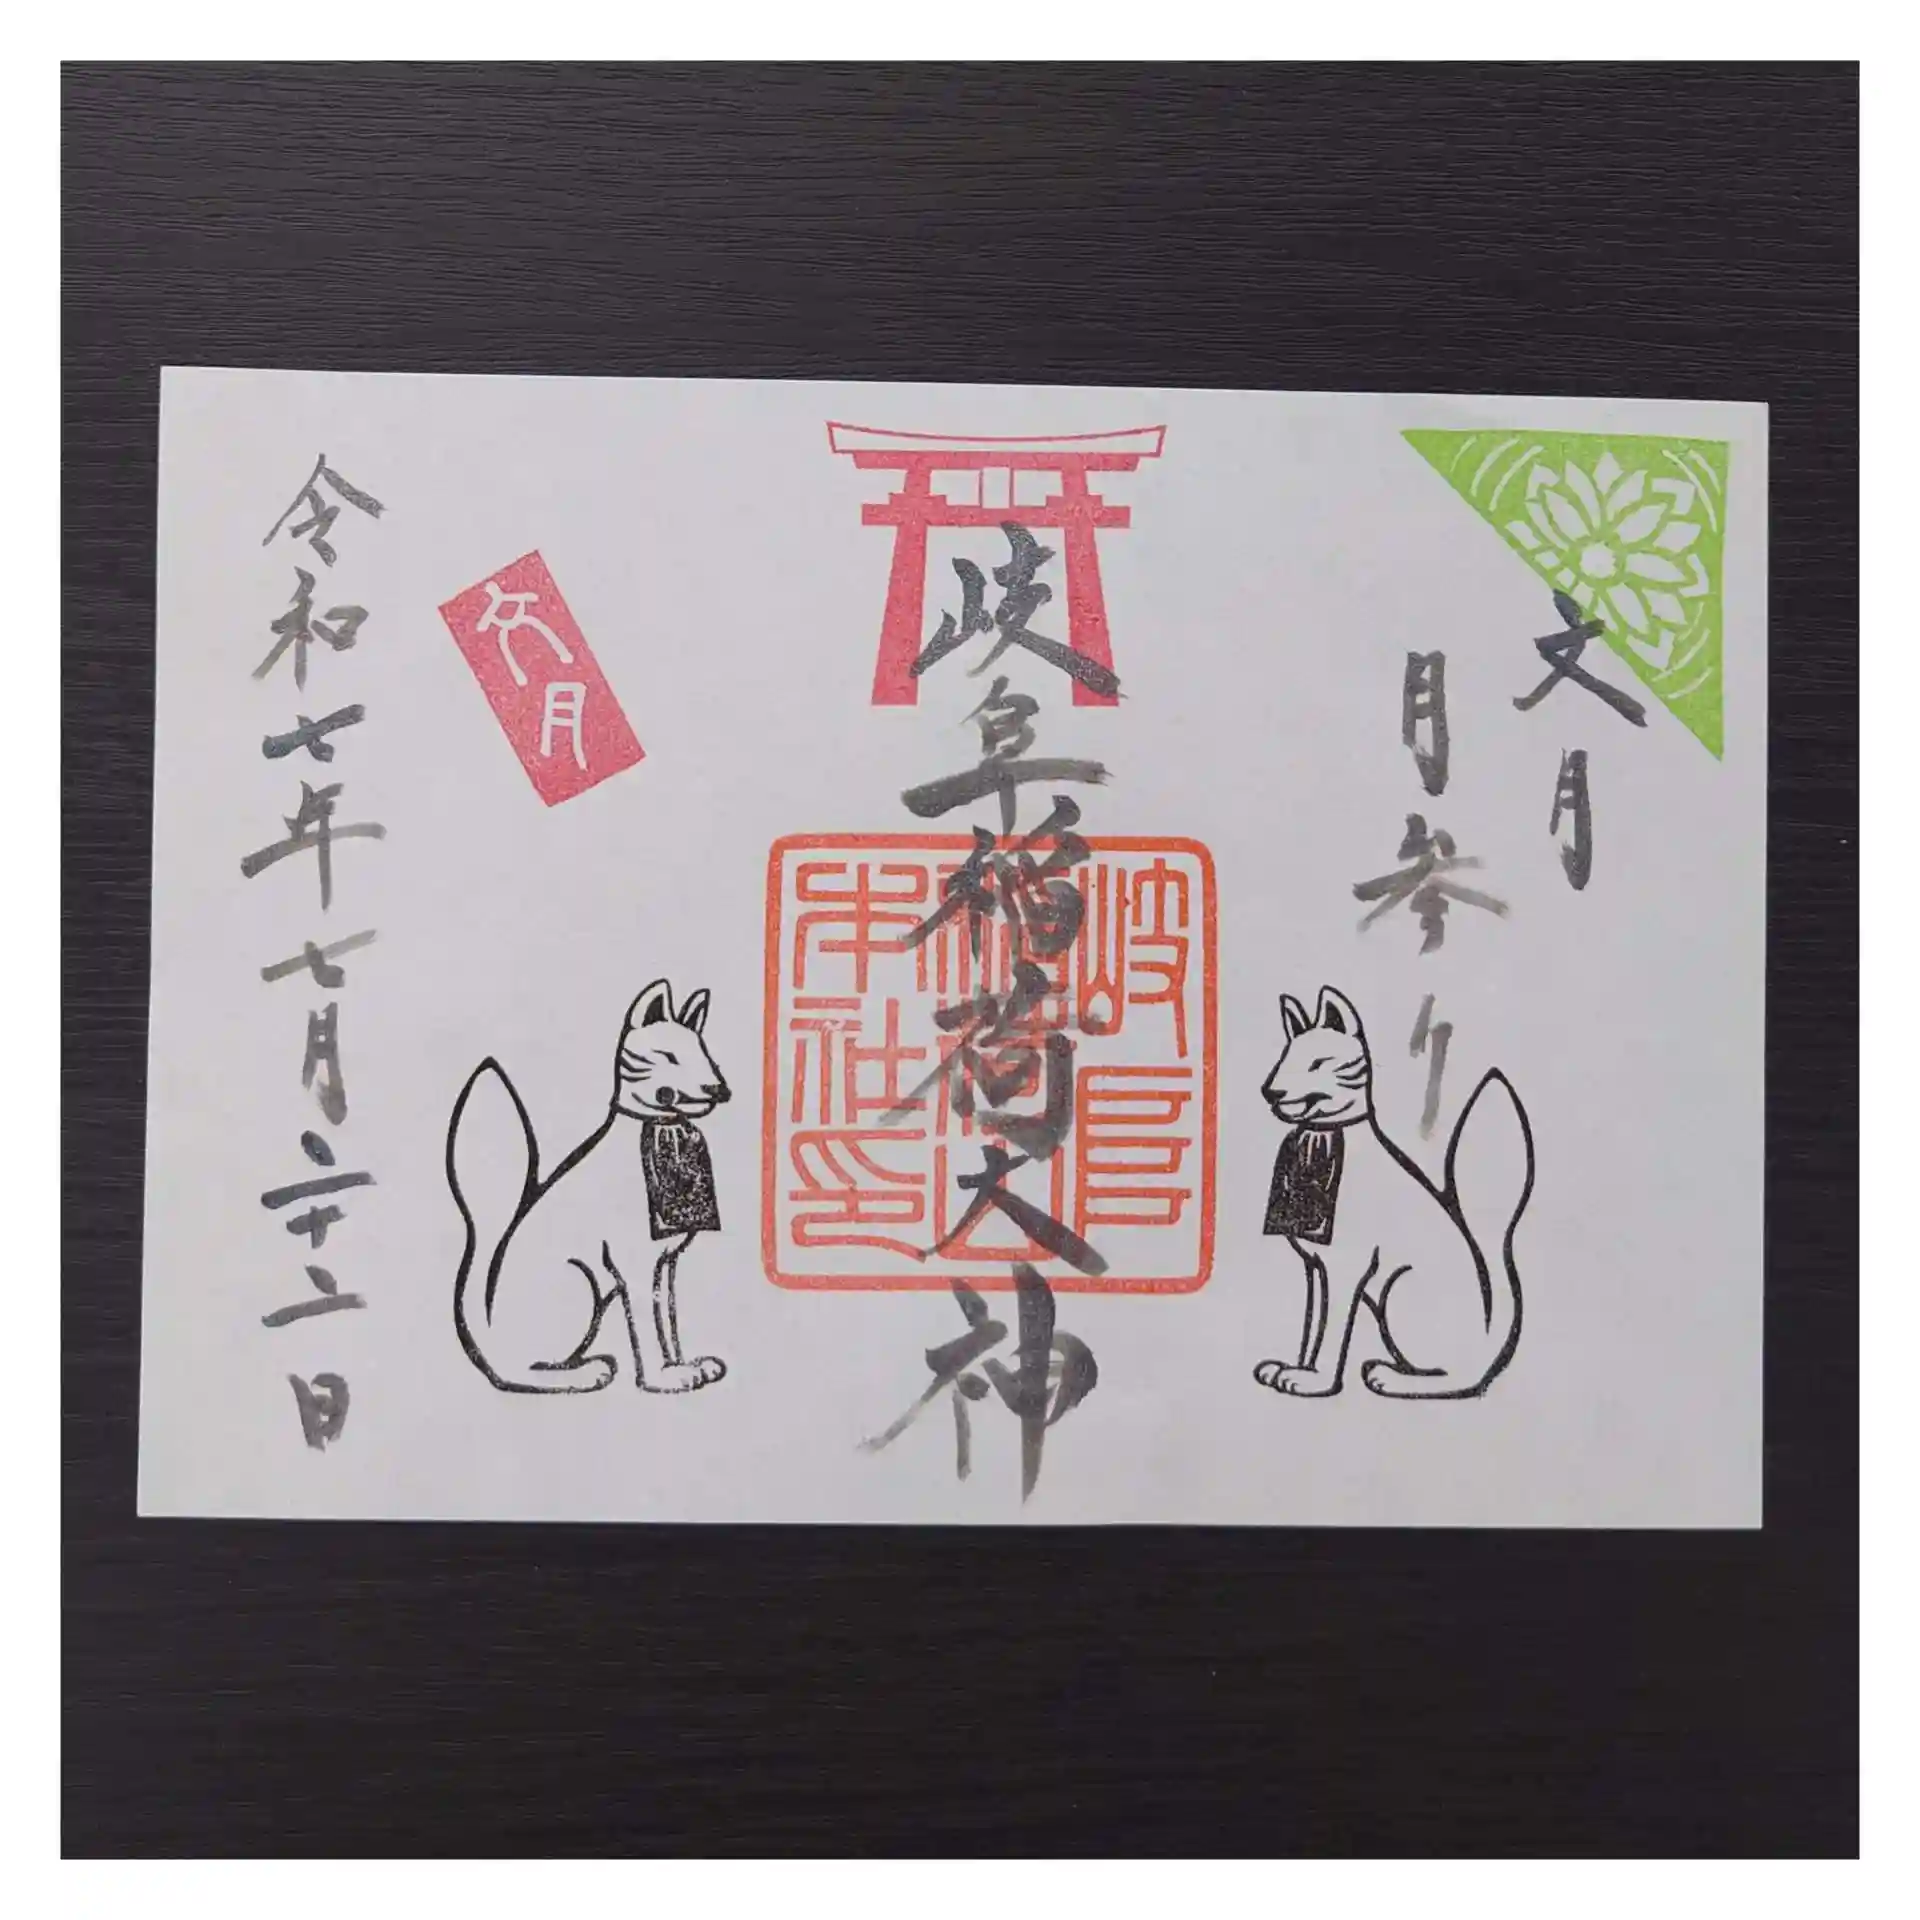 文月
月参り
岐阜稲荷大神
岐阜
稲荷山
本社印
文月
令和七年七月二十二日